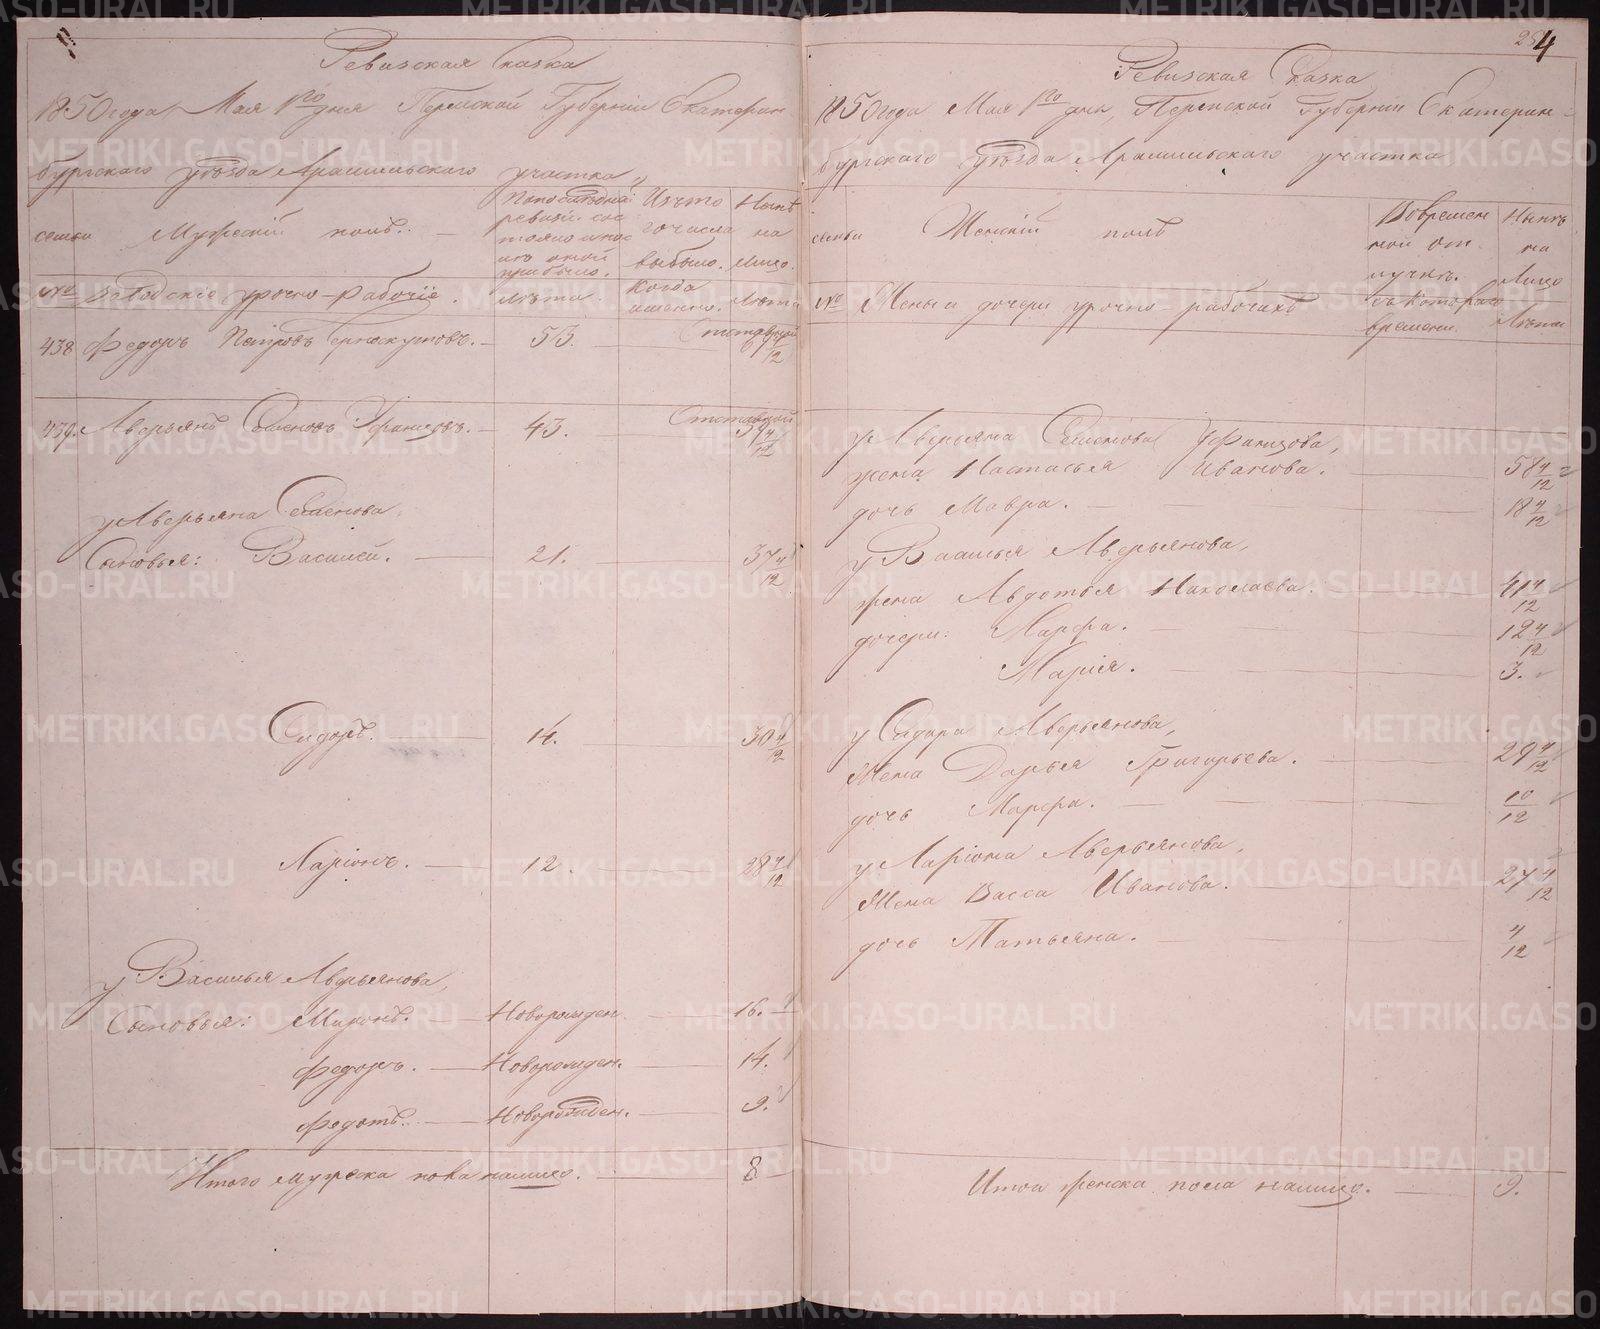 Ревизская Сказка
1850 года Мая 1го дня Пермской Губерніи Екатерин
бургскаго уѣзда Арамильскаго участка
семьи
Мужескій полъ.
По последней ревизіи состояло и после оной прибыло.
Изъ того числа выбыло.
Нынѣ на лицо.
№
Заводскіе урочно-рабочіе.
Лѣта.
Когда именно.
Лѣта
438 Федоръ Петровъ Черноскутовъ. 53. Отставной 69 4/12
439. Аверьянъ Семеновъ Уфимцовъ. 43. Отставной 59 4/12
у Аверьяна Семенова,
Сыновья: Василей. 21. 37 4/12
Сидоръ. 14. 30 4/12
Ларіонъ. 12. 28 4/12
у Василья Аверьянова,
Сыновья: Миронъ. Новорожден. 16.
Федоръ. Новорожден. 14.
Федотъ. Новорожден. 9.
Итого мужеска пола налицо. 8
284
Ревизская Сказка
1850 года Мая 1го дня, Пермской Губерніи Екатерин=
бургскаго уѣзда Арамильскаго участка
семьи
Женскій полъ
Во временной отлучкѣ.
Нынѣ на Лицо
№
Жены и дочери урочно-рабочихъ
съ котораго времени.
Лѣта
у Аверьяна Семенова Уфимцова,
жена Настасья Иванова. 58 4/12
дочь Мавра. 18 4/12
у Василья Аверьянова,
жена Авдотья Николаева. 41 4/12
дочери: Марфа. 12 4/12
Марія. 3.
у Сидора Аверьянова,
Жена Дарья Григорьева. 29 4/12
дочь Марфа. 10/12
у Ларіона Аверьянова,
Жена Васса Иванова. 27 4/12
дочь Татьяна. 4/12
Итого женска пола налицо. 9.
METRIKI.GASO-URAL.RU